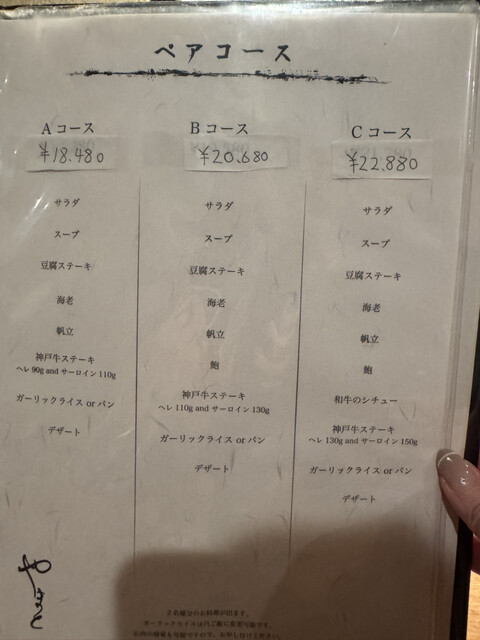 ペアコース
Aコース
¥18.480
サラダ
スープ
豆腐ステーキ
海老
帆立
神戸牛ステーキ
ヘレ 90g and サーロイン 110g
ガーリックライス or パン
デザート
Bコース
¥20.680
サラダ
スープ
豆腐ステーキ
海老
帆立
鮑
神戸牛ステーキ
ヘレ 110g and サーロイン 130g
ガーリックライス or パン
デザート
Cコース
¥22.880
サラダ
スープ
豆腐ステーキ
海老
帆立
鮑
和牛のシチュー
神戸牛ステーキ
ヘレ 130g and サーロイン 150g
ガーリックライス or パン
デザート
2名様分のお料理が出ます。